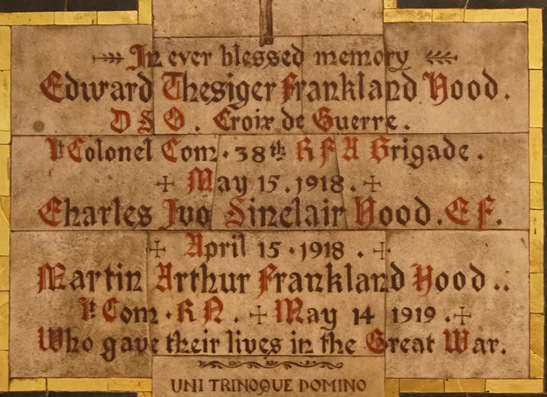 In ever blessed memory
Edward Thesiger Frankland Hood.
D S O. Croix de Guerre.
Lt Colonel Com. 38th R F A Brigade.
May 15. 1918.
Charles Ivo Sinclair Hood. C F.
April 15. 1918.
Martin Arthur Frankland Hood..
Lt Com. R N. May 14 1919.
Who gave their lives in the Great War.
UNI TRINOQUE DOMINO